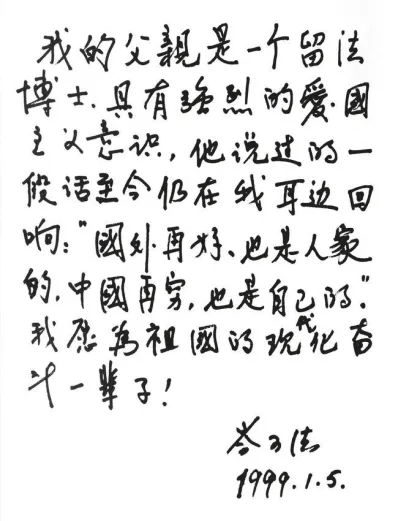 我的父親是一个留法
博士.具有強烈的愛國
主义意识,他说过的一
段话至今仍在我耳边回
响:"國外再好、也是人家
的,中國再穷,也是自己的."
我應為祖國的现代化奋
斗一辈子!
岑可法
1999.1.5.